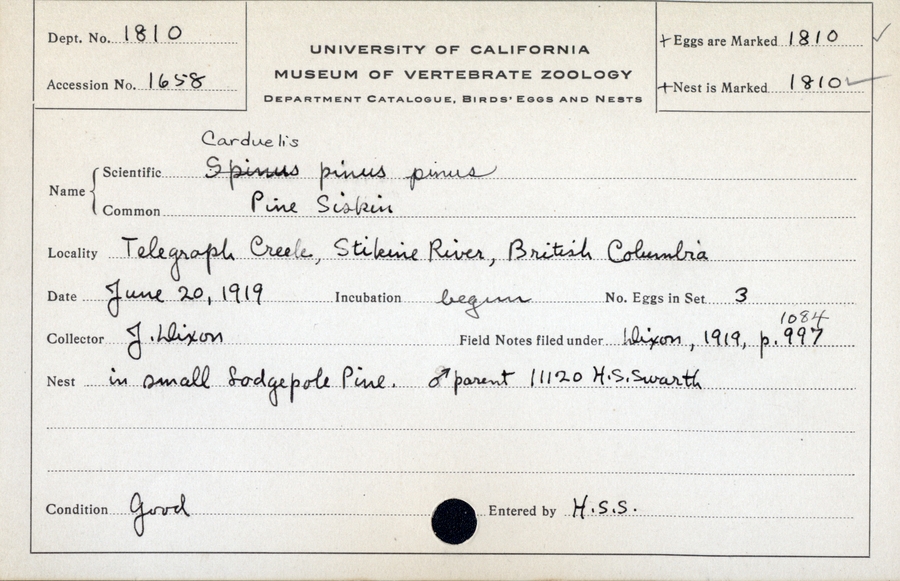 Dept. No. 1810
Accession No. 1658
UNIVERSITY OF CALIFORNIA
MUSEUM OF VERTEBRATE ZOOLOGY
DEPARTMENT CATALOGUE, BIRDS' EGGS AND NESTS
+Eggs are Marked 1810 ✓
+Nest is Marked 1810 ✓
Carduelis
Name { Scientific Spinus pinus pinus
Common Pine Siskin
Locality Telegraph Creek, Stikine River, British Columbia
Date June 20, 1919 Incubation begun No. Eggs in Set 3
1084
Collector J. Dixon Field Notes filed under Dixon, 1919, p. 997
Nest in small Lodgepole Pine. ♂ parent 11120 H.S.Swarth
Condition Good Entered by H.S.S.